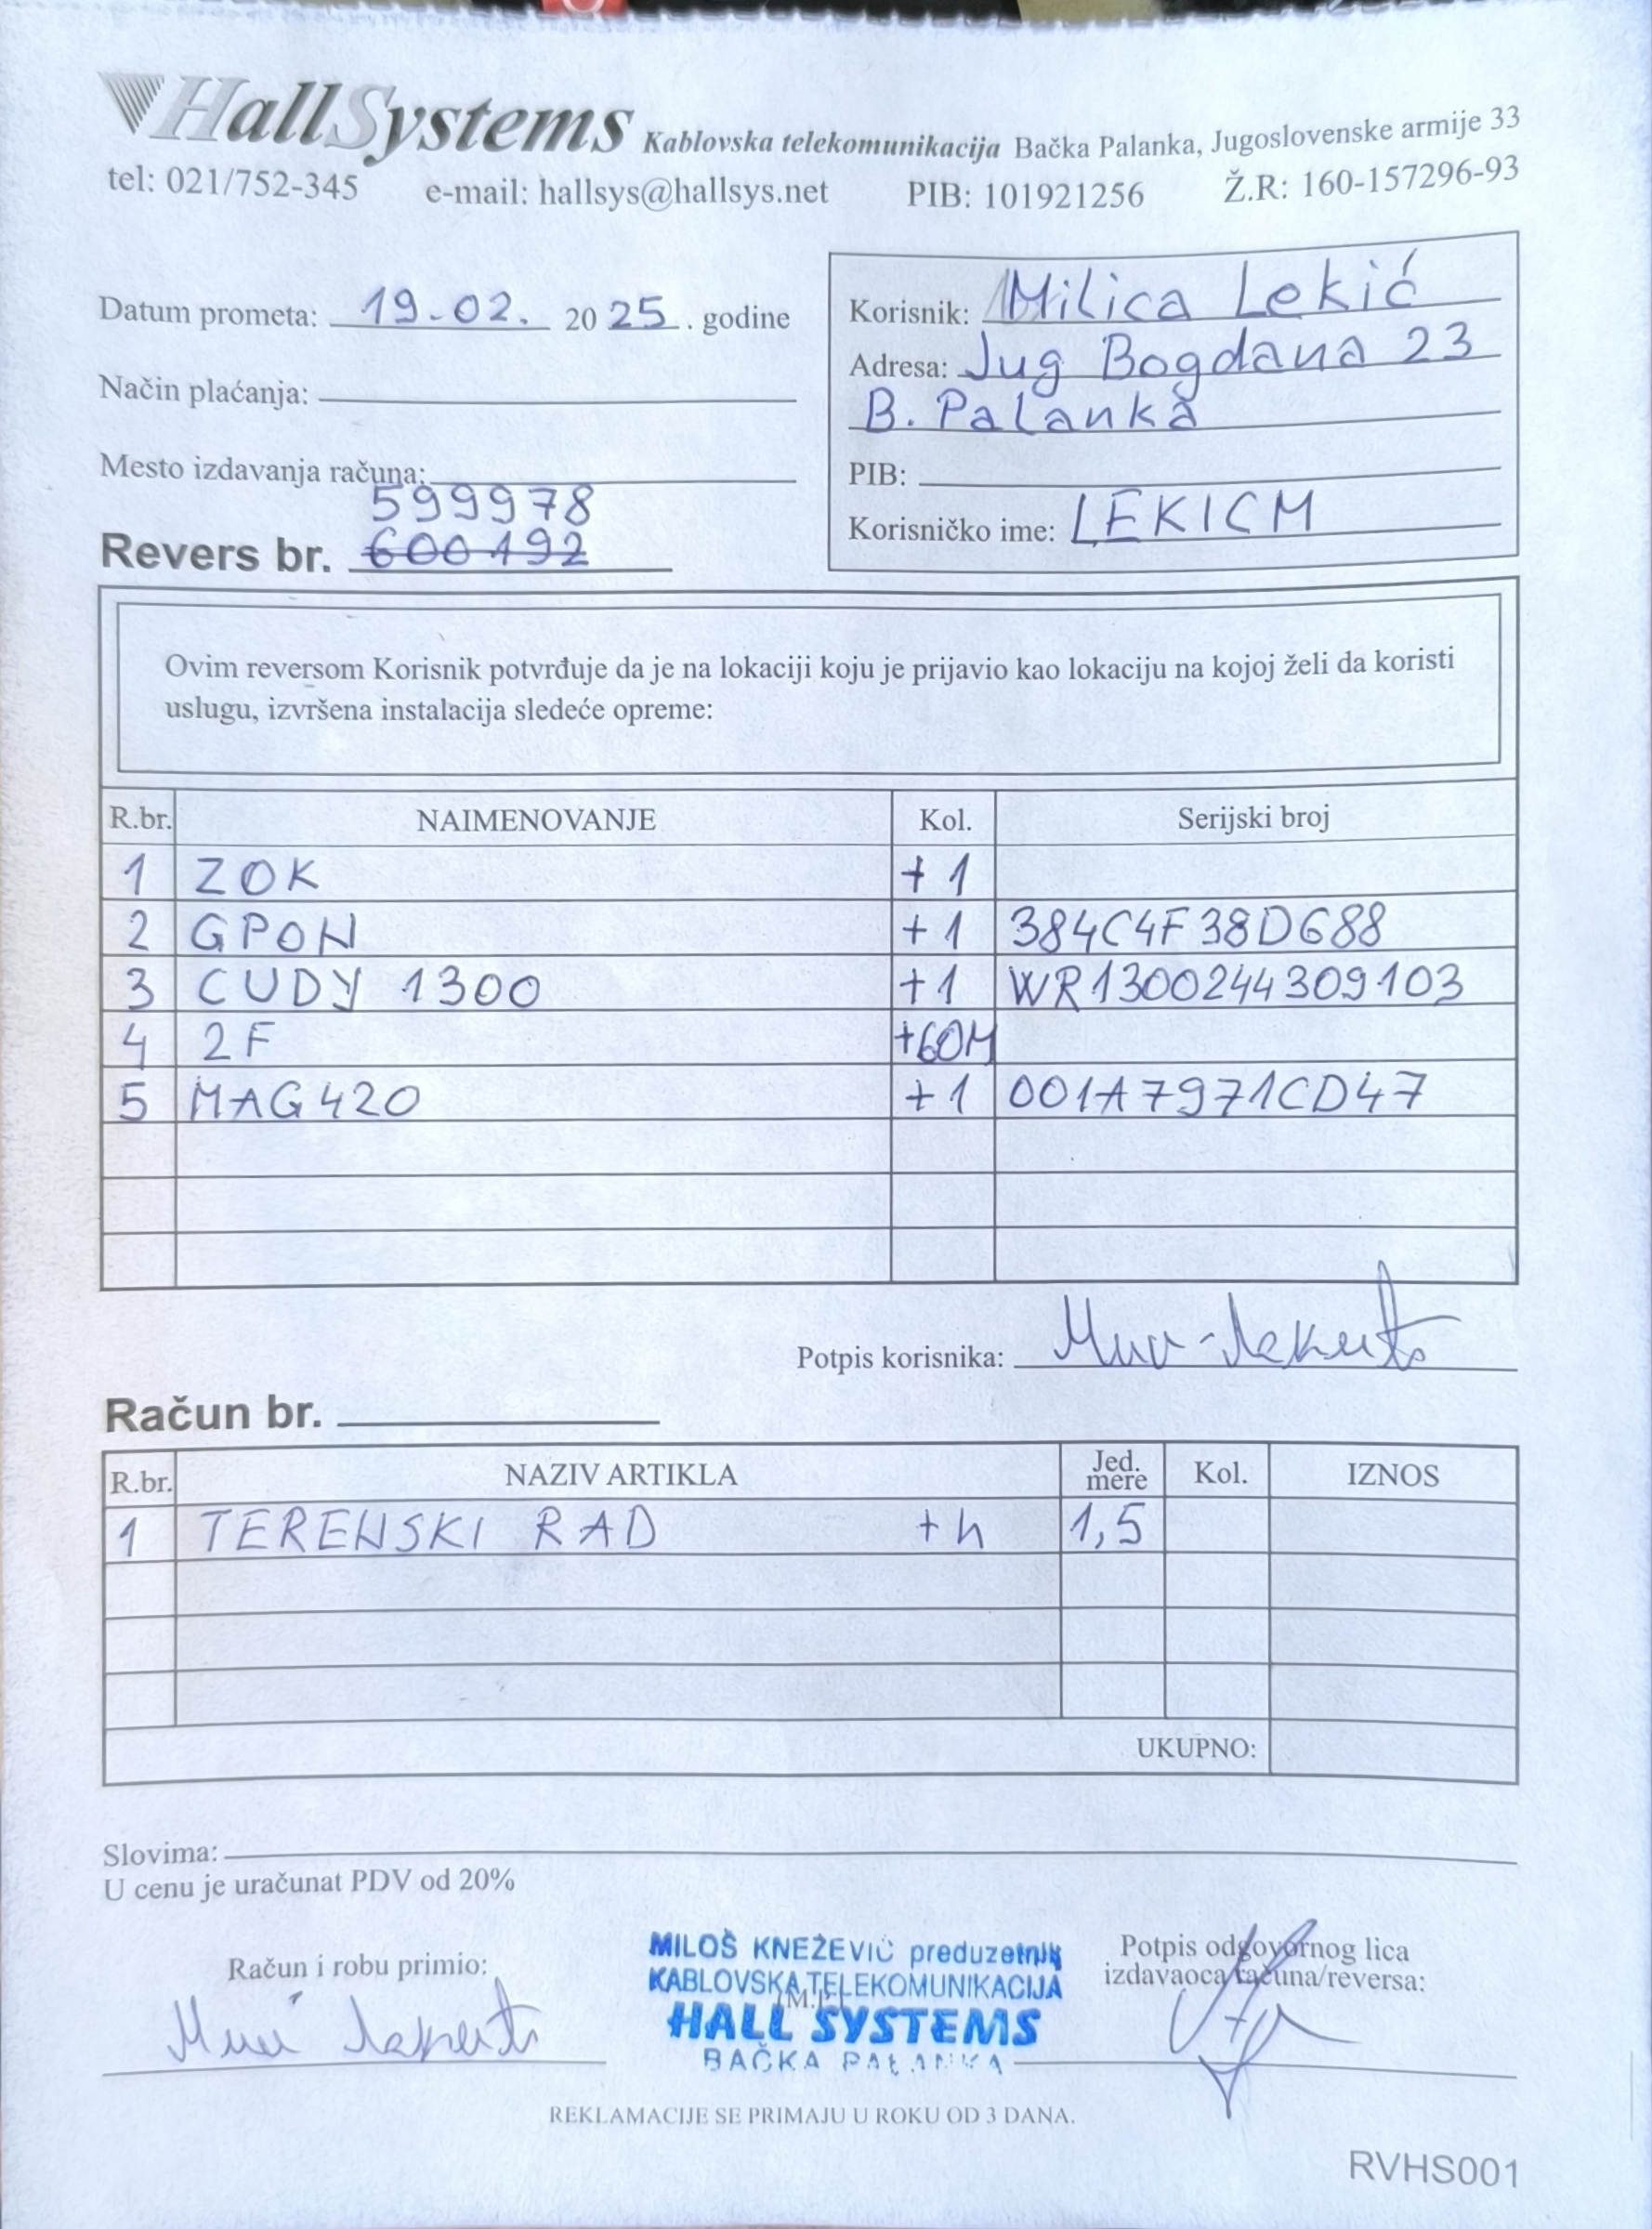 HallSystems Kablovska telekomunikacija Bačka Palanka, Jugoslovenske armije 33
tel: 021/752-345 e-mail: hallsys@hallsys.net PIB: 101921256 Ž.R: 160-157296-93
Datum prometa: 19-02. 2025. godine
Način plaćanja:
Mesto izdavanja računa:
599978
Revers br. 600192
Korisnik: Milica Lekić
Adresa: Jug Bogdana 23
B. Palanka
PIB:
Korisničko ime: LEKICM
Ovim reversom Korisnik potvrđuje da je na lokaciji koju je prijavio kao lokaciju na kojoj želi da koristi
uslugu, izvršena instalacija sledeće opreme:
R.br. NAIMENOVANJE Kol. Serijski broj
1 ZOK +1
2 GPON +1 384C4F38D688
3 CUDY 1300 +1 WR1300244309103
4 2F +60M
5 MAG420 +1 001A7971CD47
Potpis korisnika:
Račun br.
R.br. NAZIV ARTIKLA Jed. mere Kol. IZNOS
1 TERENSKI RAD +h 1,5
UKUPNO:
Slovima:
U cenu je uračunat PDV od 20%
Račun i robu primio:
MILOŠ KNEŽEVIĆ preduzetnik
KABLOVSKA TELEKOMUNIKACIJA
HALL SYSTEMS
BAČKA PALANKA
Potpis odgovornog lica
izdavaoca računa/reversa:
REKLAMACIJE SE PRIMAJU U ROKU OD 3 DANA.
RVHS001